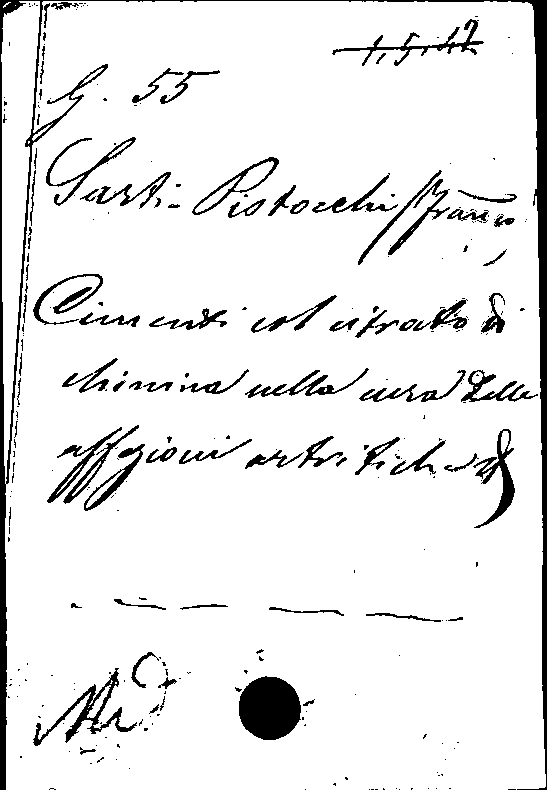 1,5,47
G. 55
Sarti-Pistocchi Franco
Cimenti col citrato di
chinina nella cura delle
affezioni artritiche